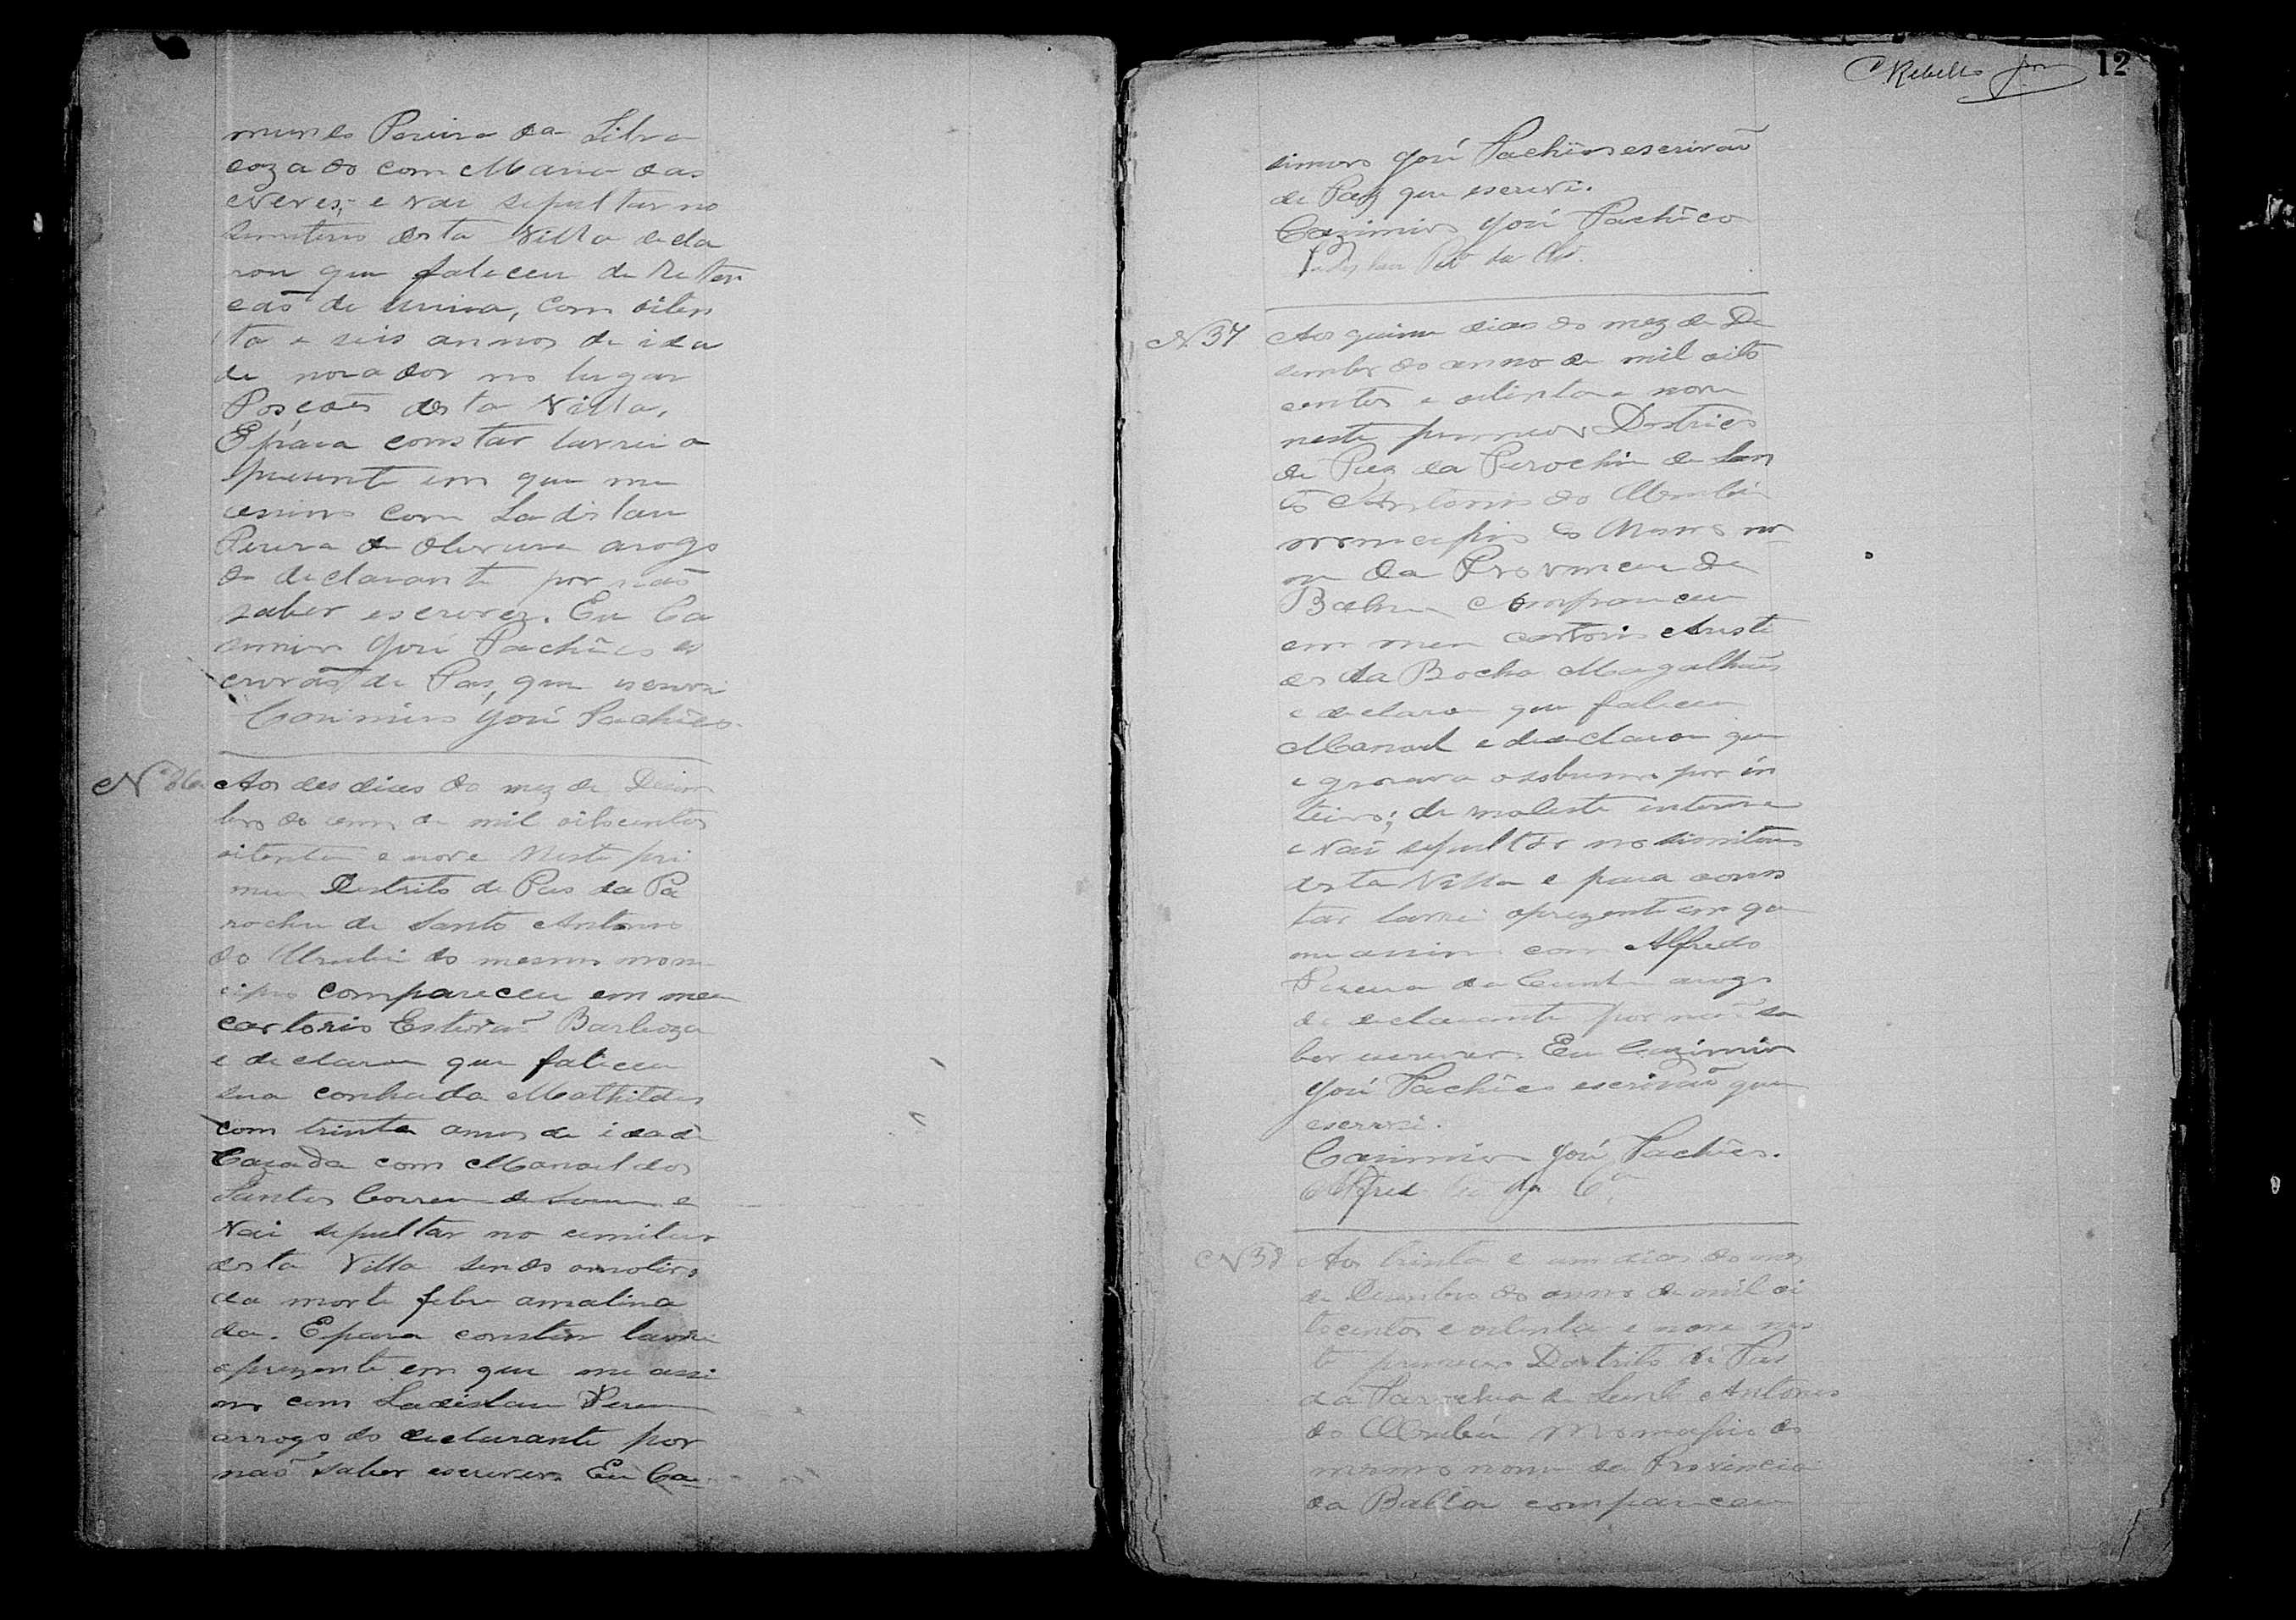 mundo Pereira da Silva
cazado com Maria das
Neves, e vai sepultar no
semiterio desta Villa decla
rou que faleceu de Reten
cão de urina, com oiten
ta e seis annos de ida
de morador no lugar
desta Villa,
E para constar lavrei o
presente em que me
assino com Ladislau
Pereira de Oliveira arogo
do declarante por não
saber escrever. Eu Ca
simiro José Pachêco es
crivão de Pas, que escrevi
Casimiro José Pachêco.
No 36 Aos des dias do mez de Dezem
bro do anno de mil oitocentos
oitenta e nove Neste pri
meiro Destrito de Pas da Pa
rochia de Santo Antonio
do Urubú do mesmo mone
cipio compareceu em meu
cartorio Estevão Barboza
e declarou que faleceu
sua conhada Mathildes
com trinta annos de idade
Cazada com Manoel dos
Santos Correa e
vai sepultar no cemiterio
desta Villa sendo omotivo
da morte febre amalina
da. E para constar lavrei
oprezente em que me assi
no com Ladislau Pereira
arrogo do declarante por
não saber escrever. Eu Ca
Rebello 12
simiro José Pachêco escrivão
de Paz que escrevi.
Cazimiro José Pachêco
N 37 Aos quinse dias do mez de De
sembro do anno de mil oito
centos e oitenta e nove
neste primeiro Destrico
de Paz da Parochia de San
to Antonio do Urubú
monecipio do mesmo no
me da Provincia da
Bahia Compareceu
em meu cartorio Aristi
des da Rocha Magalhães
e declarou que faleceu
Manoel e declarou que
e gnorava por in
teiro; de molestia interna
e vai sepultar no simiterio
desta Villa e para cons
tar lavrei oprezente em que
me assino com Alfredo
Pereira da Cunha arogo
do declarante por não sa
ber escrever. Eu Cazimiro
José Pachêco escrivão que
escrevi.
Casimiro José Pachêco.
Alfred da Ca
N 38 Aos trinta e um dias do mes
de Desembro do anno de mil oi
tocentos e oitenta e nove nes
te primeiro Destrito de Pas
da Parochia de Santo Antonio
do Urubú Monecipio do
mesmo nome da Provincia
da Bahia compareceu